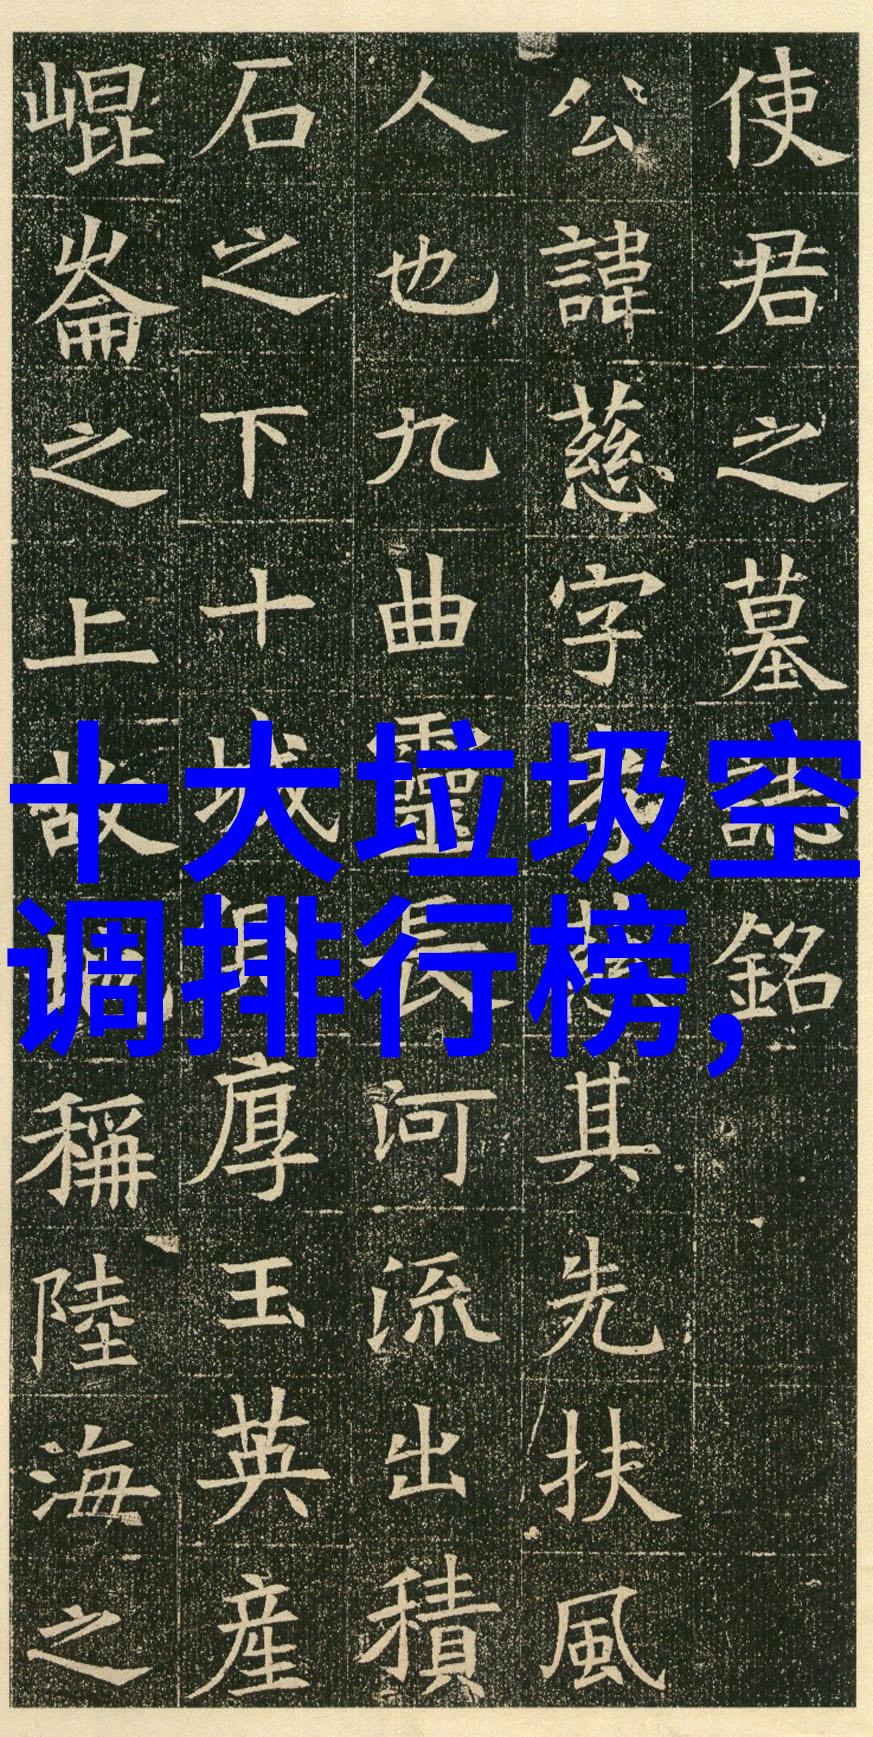 使君之墓誌銘
公諱慈字其先扶風
人也九曲靈長河流出積
石之下十城厚玉英産
崐崘之上故稱陸海之
十大垃圾空
调排行榜,